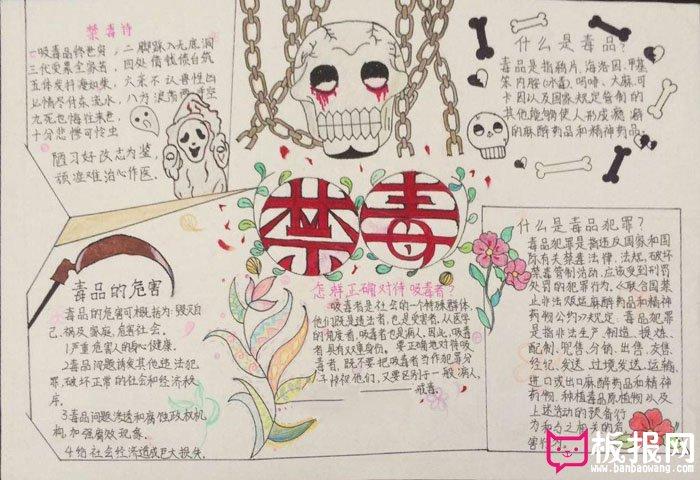 禁毒诗
一吸毒品终世穷，二脚踩入无底洞
三代受累全家苦，四处借钱债台筑
五体发抖海如柴，六亲不认兽性凶
七情尽付东流水，八方浪荡两手空
九死也悔往来色，
十分悲惨可怜虫
陋习好改志为鉴
顽症难治心作医。
什么是毒品？
毒品是指鸦片、海洛因、甲基
苯丙胺(冰毒)、吗啡、大麻、可
卡因以及国家规定管制的
其他能够使人形成瘾癖
的麻醉药品和精神药品。
禁毒
毒品的危害
毒品的危害可概括为：毁灭自
己、祸及家庭、危害社会。
1严重危害人的身心健康。
2毒品问题诱发其他违法犯
罪，破坏正常的社会和经济秩
序。
3毒品问题渗透和腐蚀政权机
构，加强腐败现象。
4给社会经济造成巨大损失。
怎样正确对待吸毒者？
吸毒者是社会的一个特殊群体，
他们既是违法者，也是受害者，从医学
的角度看，吸毒者也是病人，因此，吸毒
者具有双重身份。要正确地对待吸
毒者，既不要把吸毒者当作犯罪分
子歧视他们，又要区别于一般病人
戒毒。
什么是毒品犯罪？
毒品犯罪是指违反国家和国
际有关禁毒法律、法规，破坏
禁毒管制活动，应该受到刑罚
处罚的犯罪行为。《联合国禁
止非法贩运麻醉药品和精神
药物公约》规定，毒品犯罪
是指非法生产、制造、提炼、
配制、兜售、分销、出售、发售、
经纪、发送、过境发送、运输、
进口或出口麻醉药品和精神
药物、种植毒品原植物以及
上述活动的预备行
为和与之相关的
害行为。
板报网
www.banbaowang.com